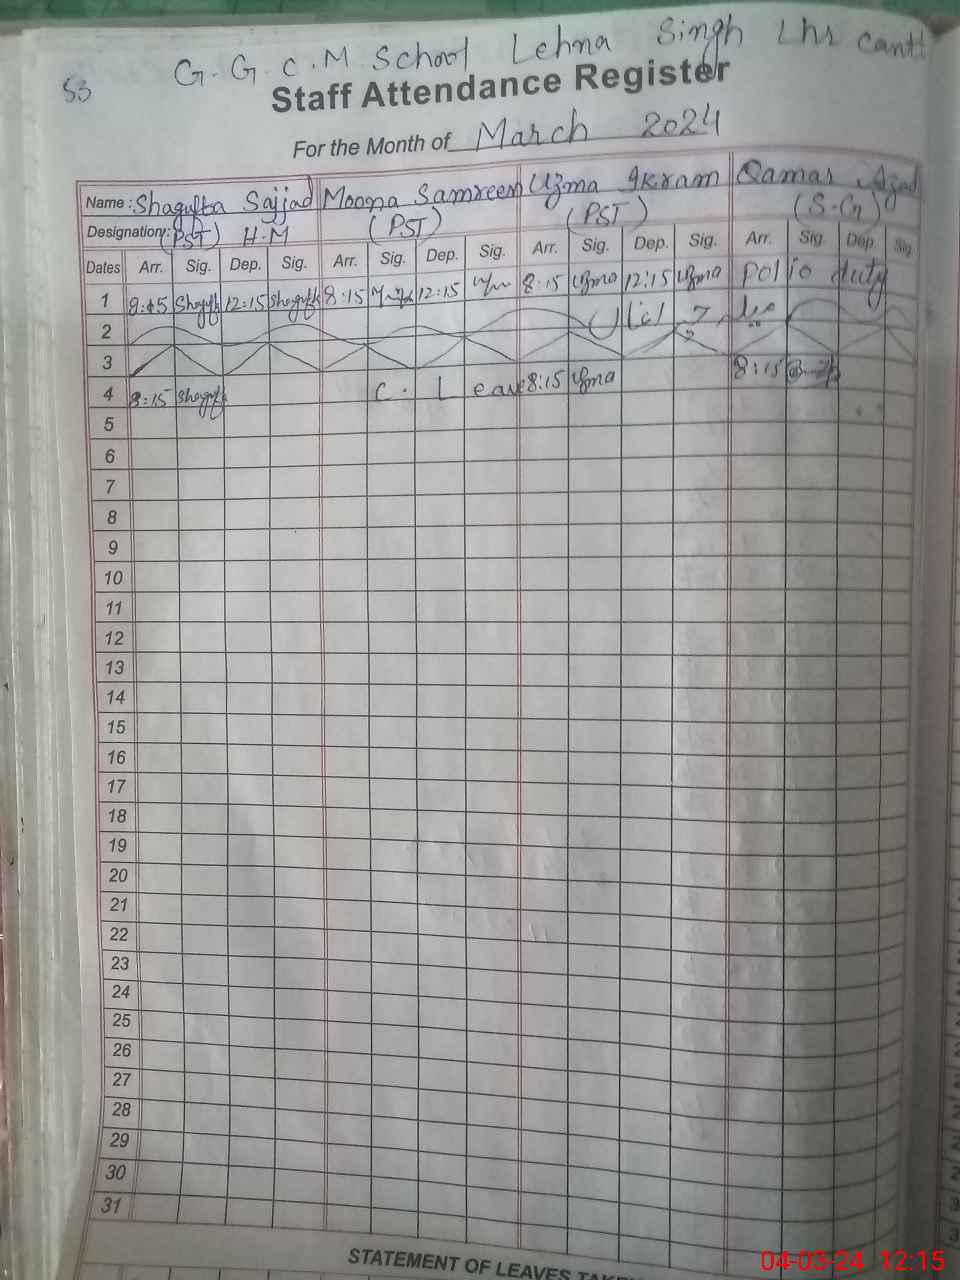 53
G.G.C.M School Lehna Singh Lhr cantt
Staff Attendance Register
For the Month of March 2024
Name : Shagufta Sajjad Moona Samreen Uzma Ikram Qamar Azad
Designation: (PST) H.M (PST) (PST)
Dates Arr. Sig. Dep. Sig. Arr. Sig. Dep. Sig. Arr. Sig. Dep. Sig. Arr. Sig. Dep. Sig.
1 12:15 8:15 12:15 8:15 Uzma 12:15 Uzma polio duty
2
3
4 8:15 C. Leave 8:15 Uzma 8:15
5
6
7
8
9
10
11
12
13
14
15
16
17
18
19
20
21
22
23
24
25
26
27
28
29
30
31
STATEMENT OF LEAVES
04-03-24 12:15